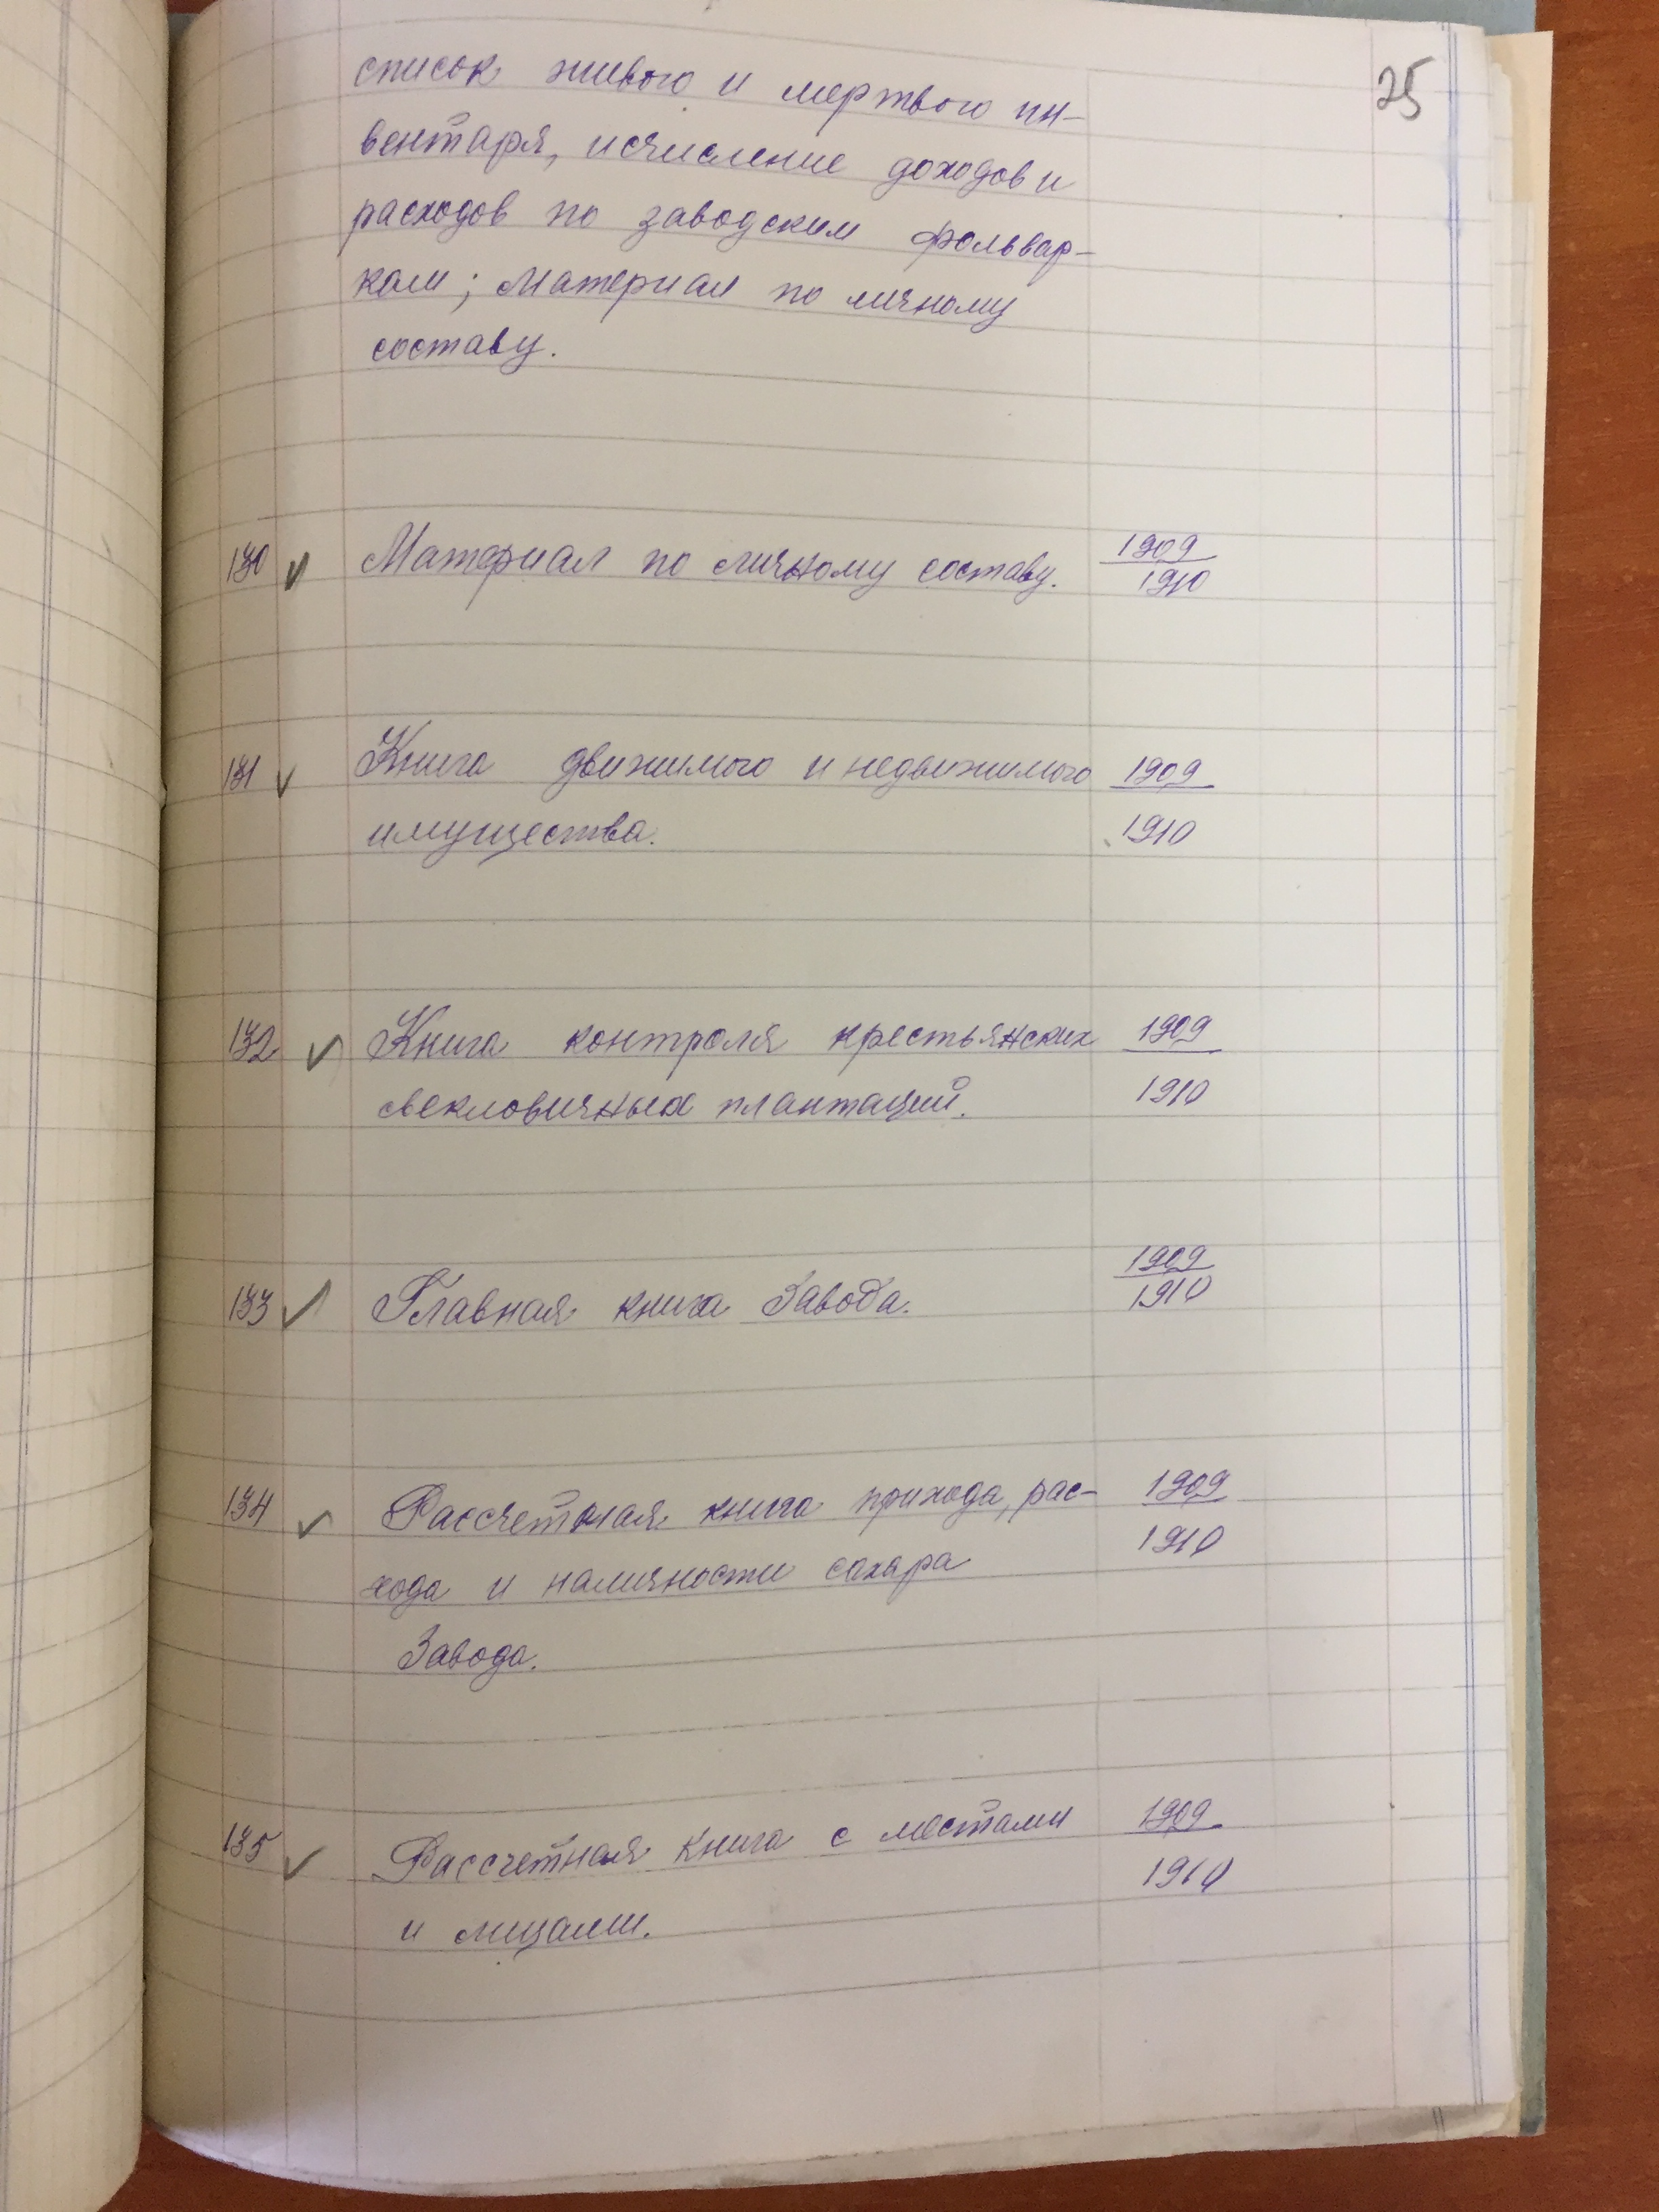 25
список живого и мертвого ин-
вентаря, исчисление доходов и
расходов по заводским фольвар-
кам; материал по личному
составу.
130 ✓ Материал по личному составу. 1909
1910
131 ✓ Книга движимого и недвижимого 1909
имущества. 1910
132 ✓ Книга контроля крестьянских 1909
свекловичных плантаций. 1910
1909
133 ✓ Главная книга Завода. 1910
134 ✓ Рассчетная книга прихода, рас- 1909
хода и наличности сахара 1910
Завода.
135 ✓ Рассчетная книга с местами 1909
и лицами. 1910